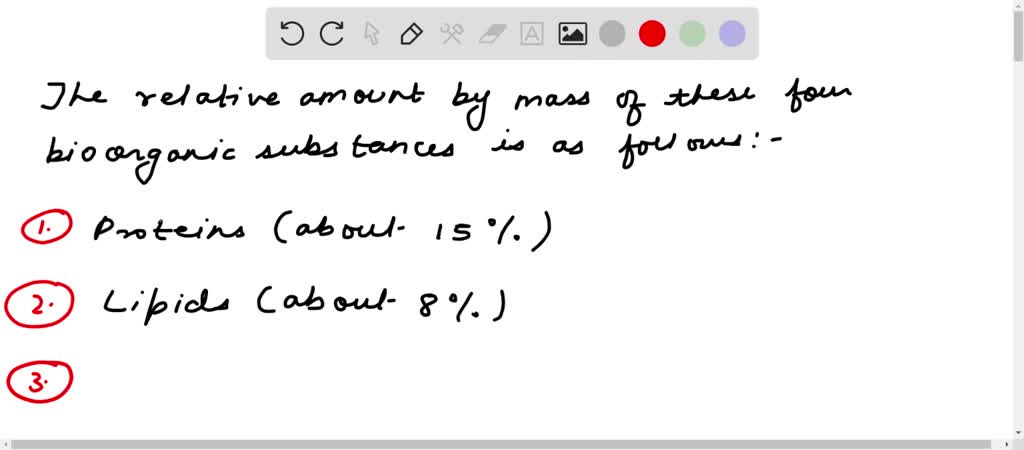 The relative amount by mass of these four
bioorganic substances is as follows:-
1. Proteins (about 15%.)
2. Lipids (about 8%.)
3.